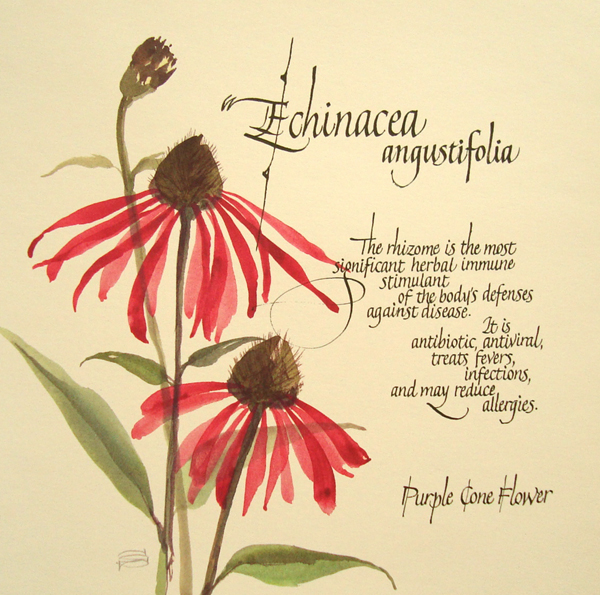 "Echinacea
angustifolia
The rhizome is the most
significant herbal immune
stimulant
of the body's defenses
against disease.
It is
antibiotic, antiviral,
treats fevers,
infections,
and may reduce
allergies.
Purple Cone Flower